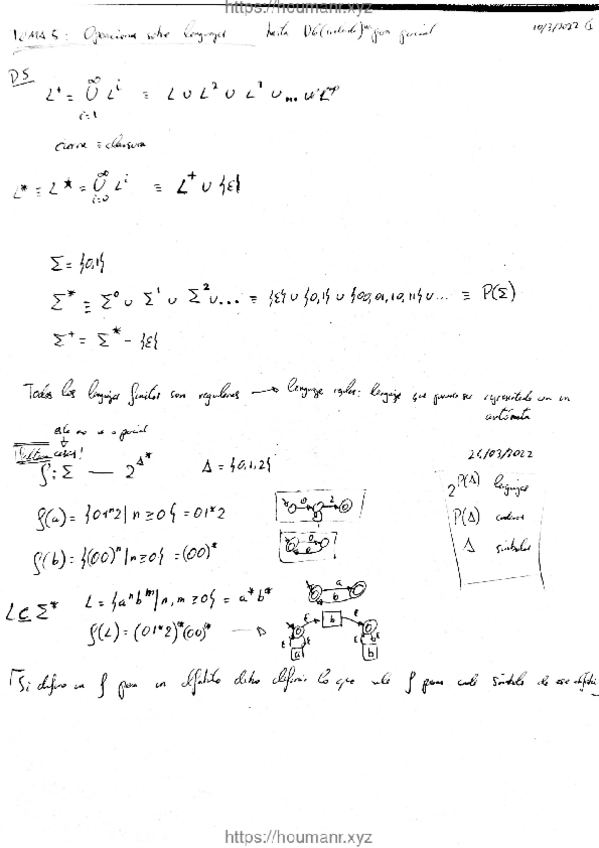 https://houmanr.xyz
TEMA 5: Operaciones sobre lenguajes hasta D6 (incluida) para parcial 10/3/2022
D5
L⁺ = ∪_{i=1}^{∞} Lⁱ ≡ L ∪ L² ∪ L³ ∪ ... ∪ L^∞
cierre ≡ clausura
L* ≡ L* = ∪_{i=0}^{∞} Lⁱ ≡ L⁺ ∪ {ε}
Σ = {0,1}
Σ* ≡ Σ⁰ ∪ Σ¹ ∪ Σ² ∪ ... ≡ {ε} ∪ {0,1} ∪ {00,01,10,11} ∪ ... ≡ P(Σ)
Σ⁺ = Σ* - {ε}
Todos los lenguajes finitos son regulares → lenguaje regular: lenguaje que puede ser representado con un
autómata
este no es parcial
24/03/2022
Faltan cosas!
f: Σ — 2^{Δ*} Δ = {0,1,2}
2^{P(Δ)} lenguajes
P(Δ) cadenas
Δ símbolos
f(a) = {01ⁿ2 | n ≥ 0} = 01*2
f(b) = {(00)ⁿ | n ≥ 0} = (00)*
L ⊆ Σ* L = {aⁿbᵐ | n, m ≥ 0} = a*b*
f(L) = (01*2)*(00)*
Si defino un f para un alfabeto debo definir lo que vale f para cada símbolo de ese alfabeto
https://houmanr.xyz